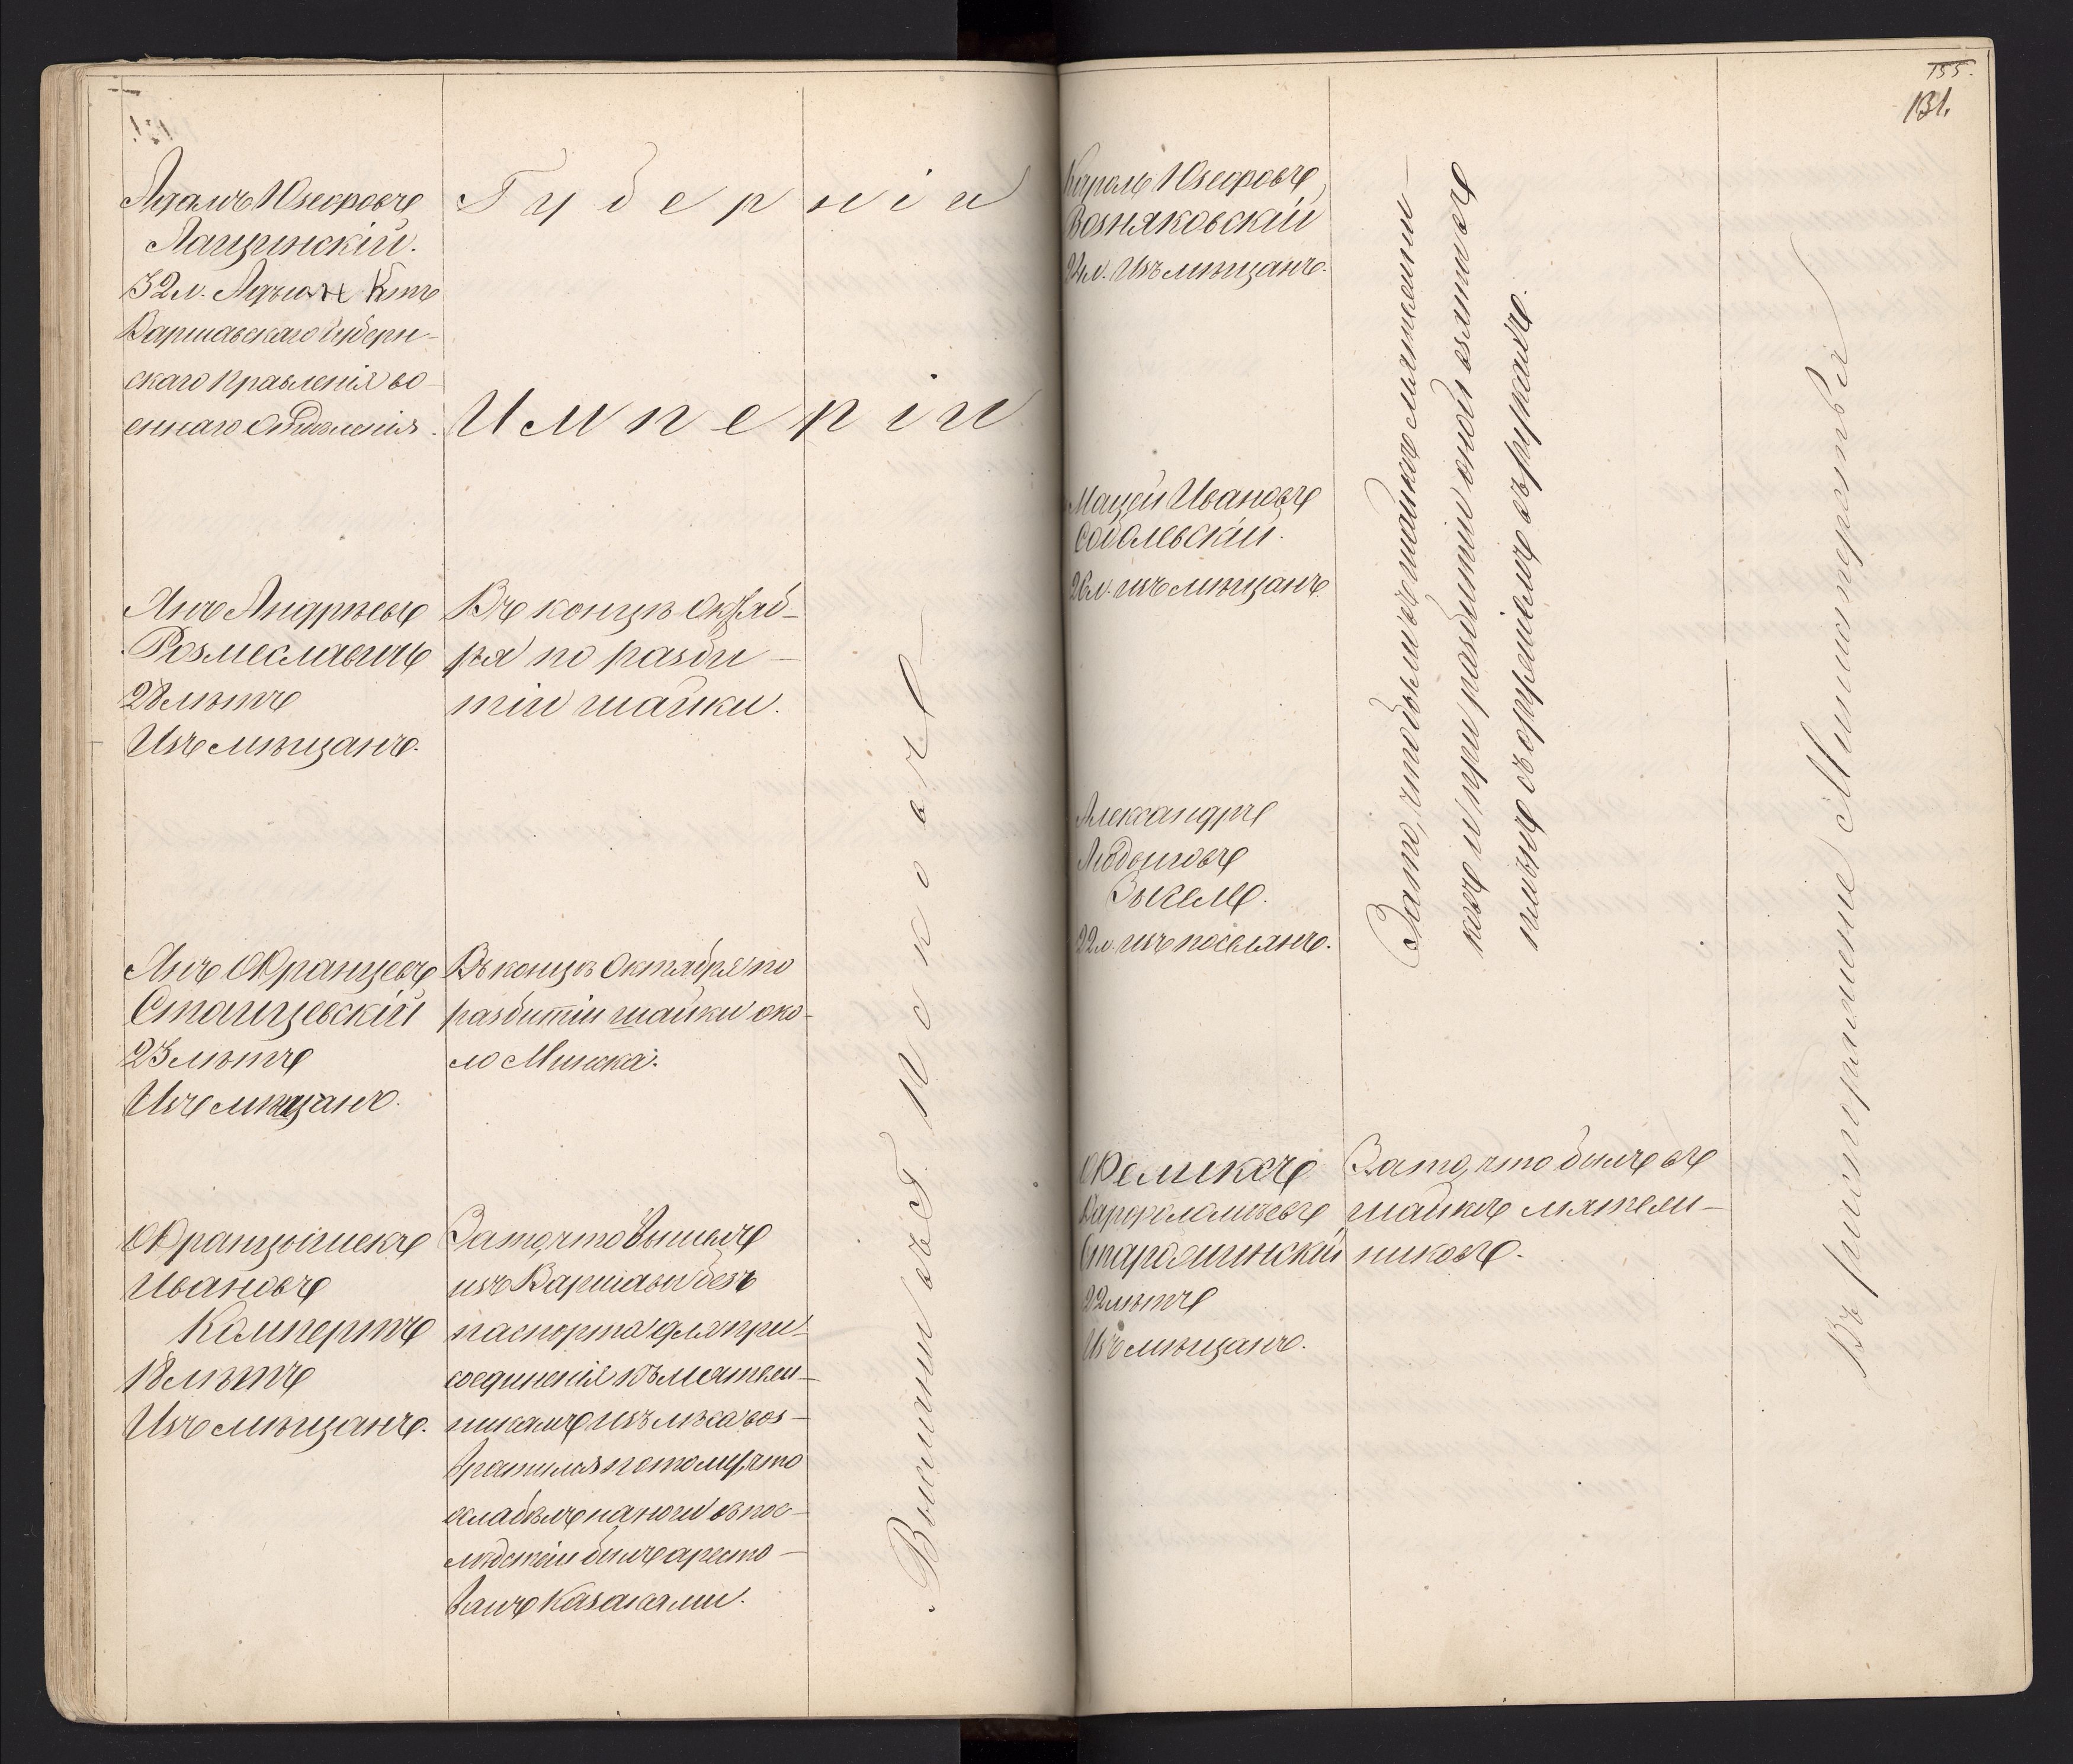 Адамъ Юзефовъ
Лащинскій.
32 л. Адъюнктъ
Варшавскаго Губерн-
скаго Правленія во-
еннаго Отдѣленія.
Губерніи
Имперіи
Янъ Андрѣевъ
Розмеславичъ
28 лѣтъ
Изъ мѣщанъ.
Въ концѣ Октяб-
ря по разби-
тіи шайки.
Янъ Францевъ
Станцевскій
23 лѣтъ
Изъ мѣщанъ.
Въ концѣ Октября по
разбитіи шайки око-
ло Минска.
Францышекъ
Ивановъ
Компертъ
18 лѣтъ
Изъ мѣщанъ.
Зато, что вышелъ
изъ Варшавы безъ
паспорта для при-
соединенія къ мятеж-
никамъ изъ лѣса воз-
вратился потому, что
ослабѣлъ на ноги въ пос-
лѣдствіи былъ аресто-
ванъ Казаками.
Высланы въ Г. Псковъ
155.
131.
Кароль Юзефовъ
Возняковскій
24 л. Изъ мѣщанъ.
Мацѣй Ивановъ
Соболевскій.
26 л. изъ мѣщанъ.
Александръ
Людвиговъ
22 л. изъ поселянъ.
Зато, что были въ шайкѣ мятежни-
ковъ и при разбитіи оной взяты въ
плѣнъ съ оружіемъ въ рукахъ.
Феликсъ
Варфоломѣевъ
22 лѣтъ
Изъ мѣщанъ.
Зато, что былъ въ
шайкѣ мятеж-
никовъ.
Въ распоряженіе Министерствъ